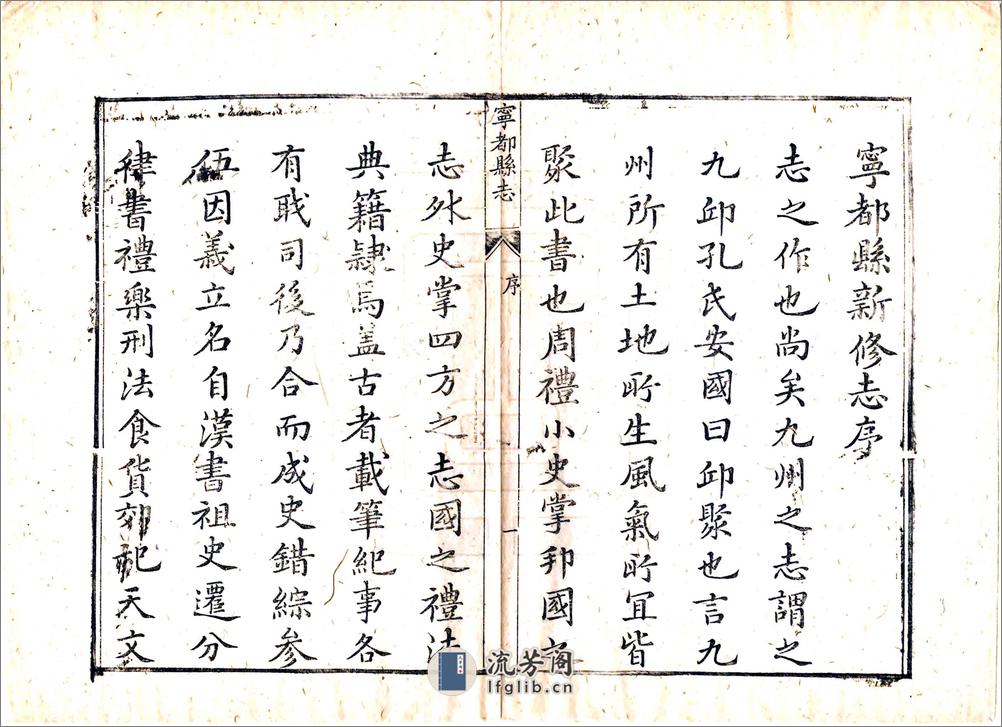 寧都縣新修志序
志之作也尚矣九州之志謂之
九邱孔氏安國曰邱聚也言九
州所有土地所生風氣所宜皆
聚此書也周禮小史掌邦國之
寧都縣志
序
一
志外史掌四方之志國之禮法
典籍隸焉盖古者載筆紀事各
有職司後乃合而成史錯綜參
伍因義立名自漢書祖史遷分
律書禮樂刑法食貨郊祀天文
流芳阁
lfglib.cn